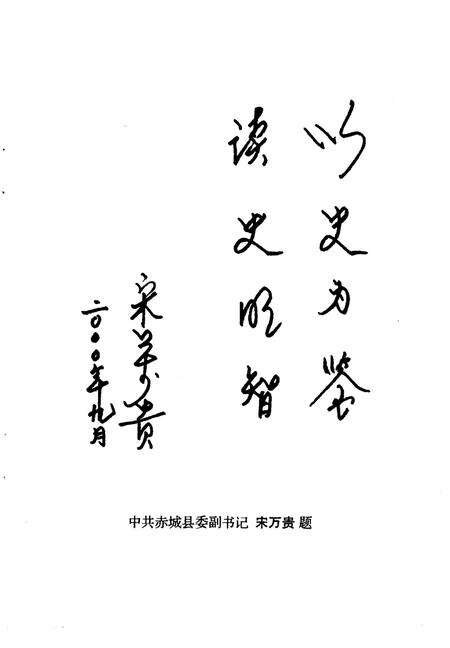 以史为鉴
读史明智
宋万贵
二〇〇〇年九月
中共赤城县委副书记 宋万贵 题